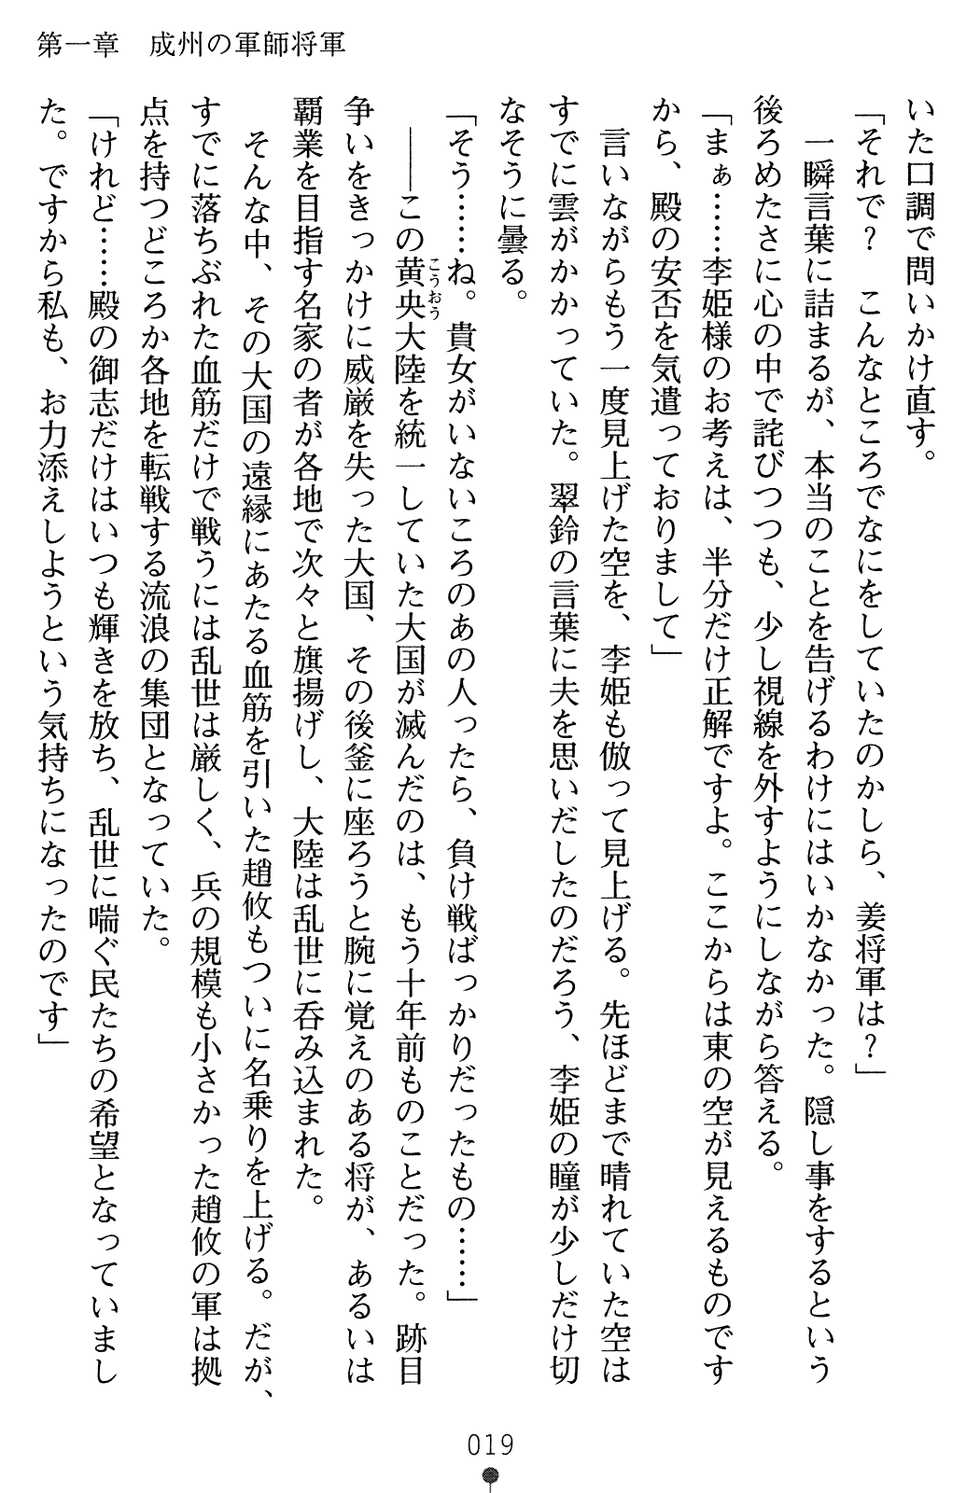 第一章　成州の軍師将軍
いた口調で問いかけ直す。
「それで？　こんなところでなにをしていたのかしら、姜将軍は？」
　一瞬言葉に詰まるが、本当のことを告げるわけにはいかなかった。隠し事をするという
後ろめたさに心の中で詫びつつも、少し視線を外すようにしながら答える。
「まぁ……李姫様のお考えは、半分だけ正解ですよ。ここからは東の空が見えるものです
から、殿の安否を気遣っておりまして」
　言いながらもう一度見上げた空を、李姫も倣って見上げる。先ほどまで晴れていた空は
すでに雲がかかっていた。翠鈴の言葉に夫を思いだしたのだろう、李姫の瞳が少しだけ切
なそうに曇る。
「そう……ね。貴女がいないころのあの人ったら、負け戦ばっかりだったもの……」
　――この黄央大陸を統一していた大国が滅んだのは、もう十年前ものことだった。跡目
こうおう
争いをきっかけに威厳を失った大国、その後釜に座ろうと腕に覚えのある将が、あるいは
覇業を目指す名家の者が各地で次々と旗揚げし、大陸は乱世に呑み込まれた。
　そんな中、その大国の遠縁にあたる血筋を引いた趙攸もついに名乗りを上げる。だが、
すでに落ちぶれた血筋だけで戦うには乱世は厳しく、兵の規模も小さかった趙攸の軍は拠
点を持つどころか各地を転戦する流浪の集団となっていた。
「けれど……殿の御志だけはいつも輝きを放ち、乱世に喘ぐ民たちの希望となっていまし
た。ですから私も、お力添えしようという気持ちになったのです」
019